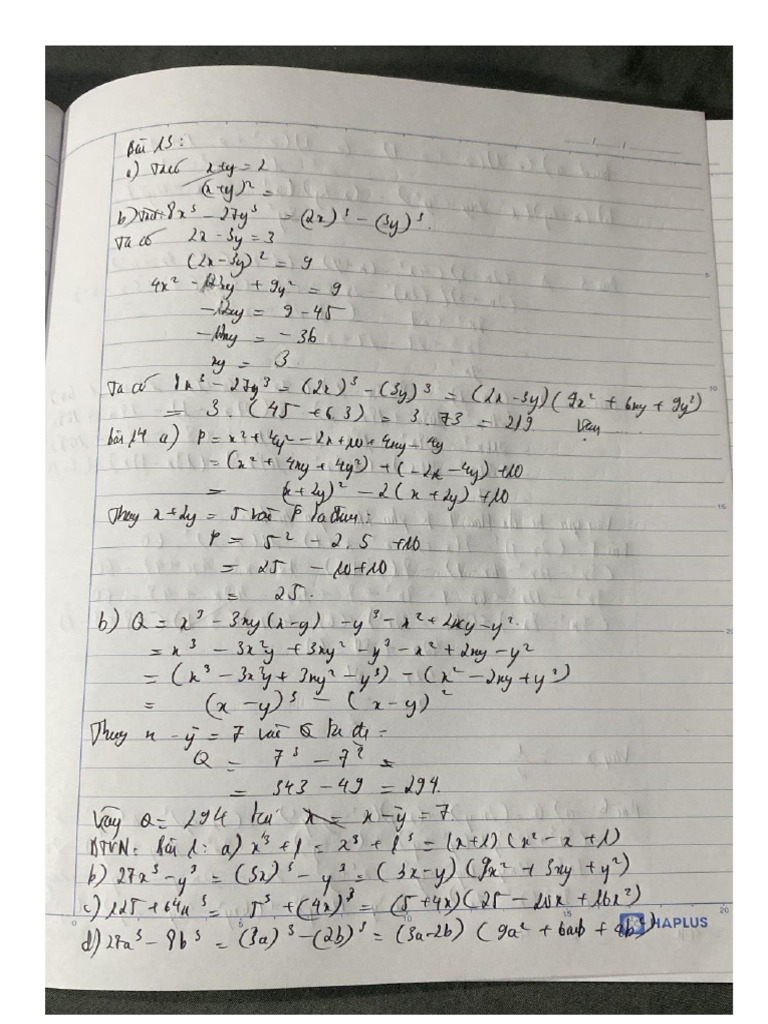 Bài 13:
a) Ta có x+y=2
(x+y)² =
b) 8x³ - 27y³ = (2x)³ - (3y)³.
Ta có 2x - 3y = 3
(2x-3y)² = 9
4x² - 12xy + 9y² = 9
-12xy = 9 - 45
-12xy = -36
xy = 3
Ta có 8x³ - 27y³ = (2x)³ - (3y)³ = (2x-3y)(9x² + 6xy + 9y²)
= 3. (45 + 6.3) = 3.73 = 219. Vậy
bài 14 a) P = x²+4y² - 2x+10+4xy-4y
= (x² + 4xy + 4y²) + (-2x - 4y) +10
= (x+2y)² - 2(x+2y)+10
Thay x+2y = 5 vào P ta được:
P = 5² - 2.5 +10
= 25 - 10+10
= 25.
b) Q = x³ - 3xy(x-y) - y³ - x² + 2xy - y²
= x³ - 3x²y + 3xy² - y³ - x² + 2xy - y²
= (x³ - 3x²y + 3xy² - y³) - (x² - 2xy + y²)
= (x - y)³ - (x - y)²
Thay x - y = 7 vào Q ta đc =
Q = 7³ - 7² =
= 343 - 49 = 294.
Vậy Q = 294 x - y = 7
BTVN: Bài 1: a) x³ + 1 = x³ + 1³ = (x+1)(x² - x + 1)
b) 27x³ - y³ = (3x)³ - y³ = (3x-y)(9x² + 3xy + y²)
c) 125 + 64x³ = 5³ + (4x)³ = (5+4x)(25 - 20x + 16x²)
d) 27a³ - 8b³ = (3a)³ - (2b)³ = (3a-2b) (9a² + 6ab + 4b²)
HAPLUS